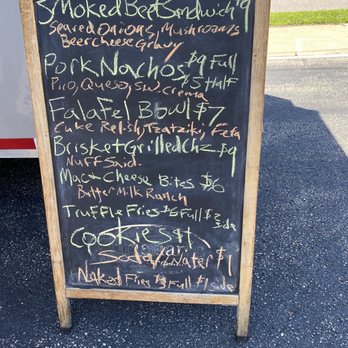 Smoked Beef Sandwich $9
Seared Onions, Mushrooms
Beer Cheese Gravy
Pork Nachos $9 Full
$5 Half
Pico, Queso, SW Crema
Falafel Bowl $7
Cuke Relish, Tzatziki, Feta
Brisket Grilled Chz $9
Nuff Said.
Mac & Cheese Bites $6
Butter Milk Ranch
Truffle Fries $6 Full $3
side
Cookies $1
Soda/Water $1
Naked Fries $3 Full $1 side